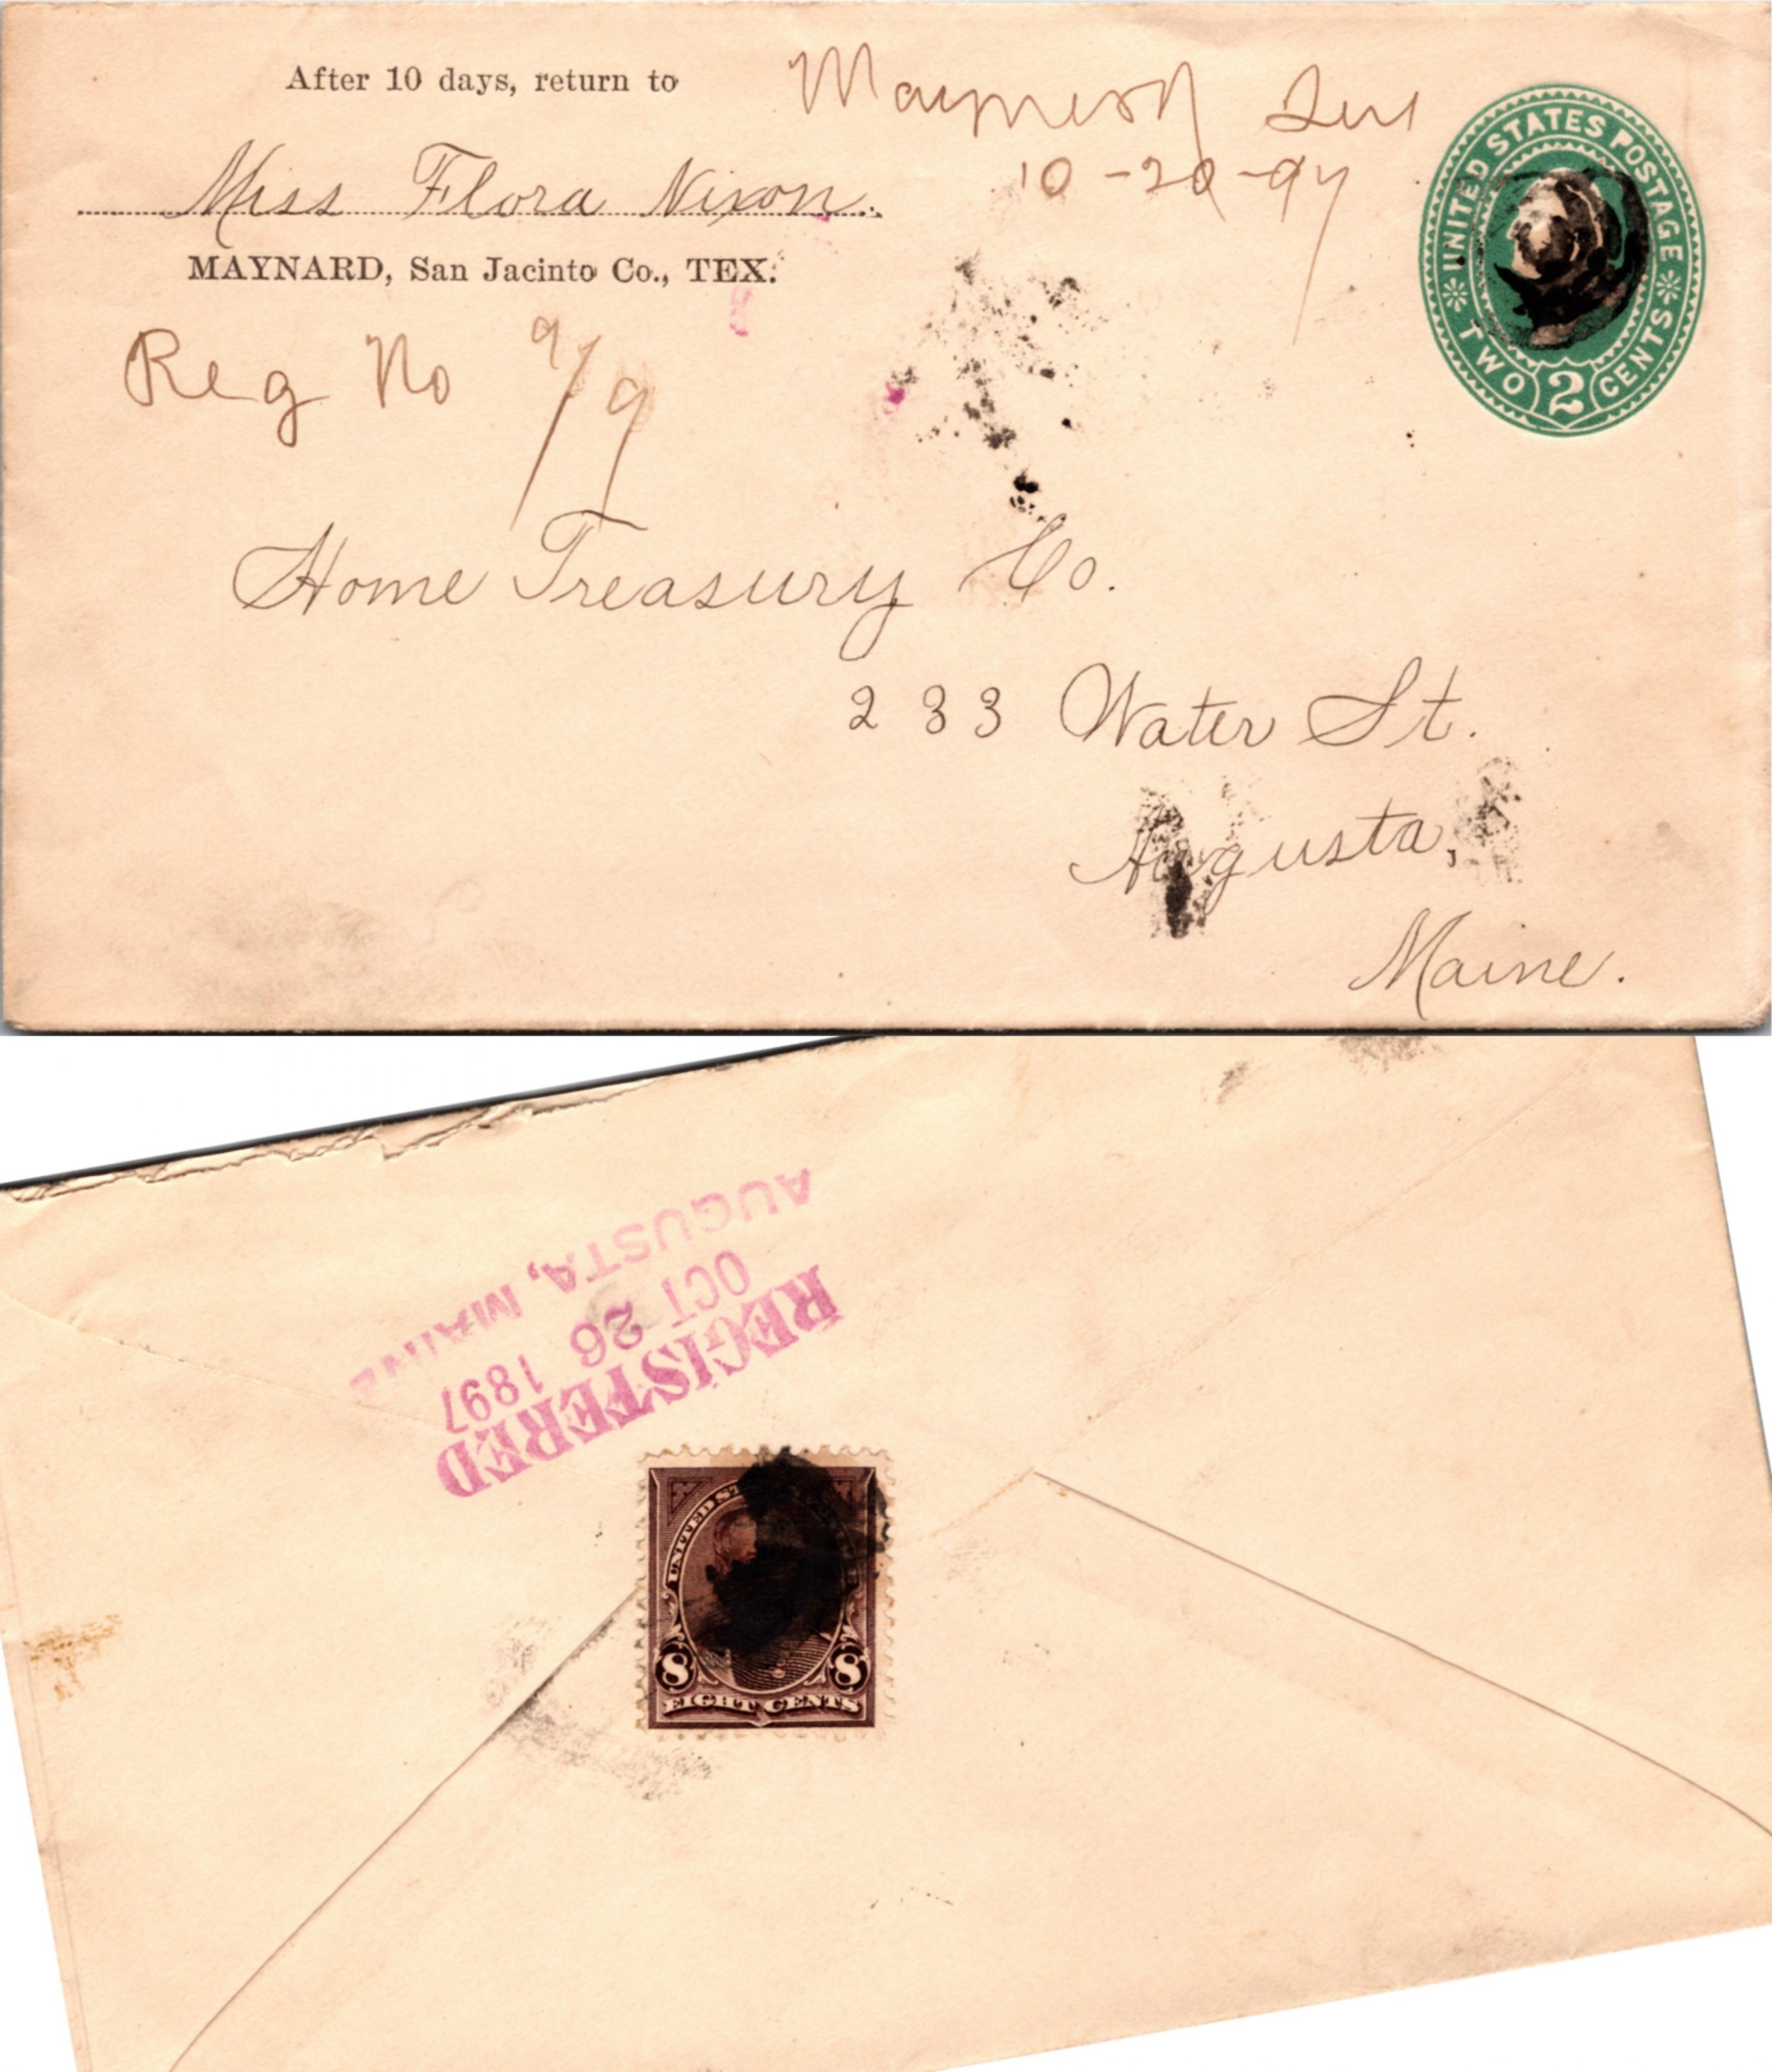 After 10 days, return to
Miss Flora Nixon.
MAYNARD, San Jacinto Co., TEX.
10-20-97
UNITED STATES POSTAGE
TWO 2 CENTS
Reg No 9/9
Home Treasury Co.
233 Water St.
Augusta,
Maine.
REGISTERED
OCT 26 1897
AUGUSTA, MAINE
UNITED ST
8 8
EIGHT CENTS